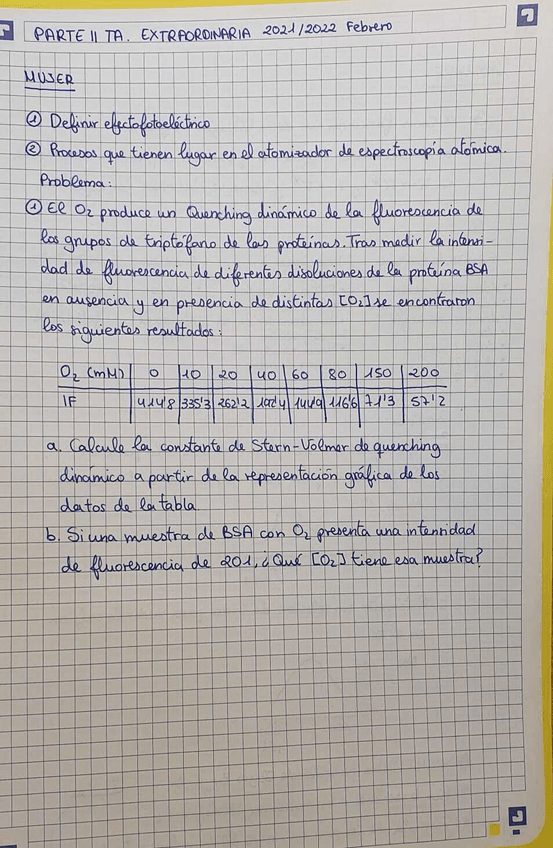 PARTE II TA. EXTRAORDINARIA 2021/2022 Febrero
MUJER
① Definir efecto fotoeléctrico
② Procesos que tienen lugar en el atomizador de espectroscopía atómica.
Problema:
① El O₂ produce un Quenching dinámico de la fluorescencia de
los grupos de triptófano de las proteínas. Tras medir la intensi-
dad de fluorescencia de diferentes disoluciones de la proteína BSA
en ausencia y en presencia de distintas [O₂] se encontraron
los siguientes resultados:
O₂ (mM) 0 10 20 40 60 80 150 200
IF 414'8 335'3 262'2 144'9 116'6 71'3 57'2
a. Calcule la constante de Stern-Volmer de quenching
dinámico a partir de la representación gráfica de los
datos de la tabla
b. Si una muestra de BSA con O₂ presenta una intensidad
de fluorescencia de 201, ¿Qué [O₂] tiene esa muestra?